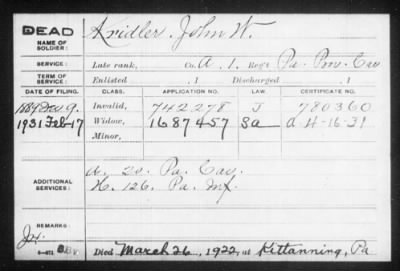 DEAD Kridler, John W.
NAME OF SOLDIER:
SERVICE: Late rank, Co. A, 1, Reg't Pa. Prov. Cav
TERM OF SERVICE: Enlisted , 1 Discharged , 1
DATE OF FILING. CLASS. APPLICATION NO. LAW. CERTIFICATE NO.
1889 Dec 9. Invalid, 742278 J 780360
1931 Feb 17 Widow, 1687457 Sa a 4-16-31
Minor,
ADDITIONAL SERVICES: A. 20. Pa. Cav.
K. 126. Pa. Inf.
REMARKS:
Died March 26, 1922, at Kittanning, Pa